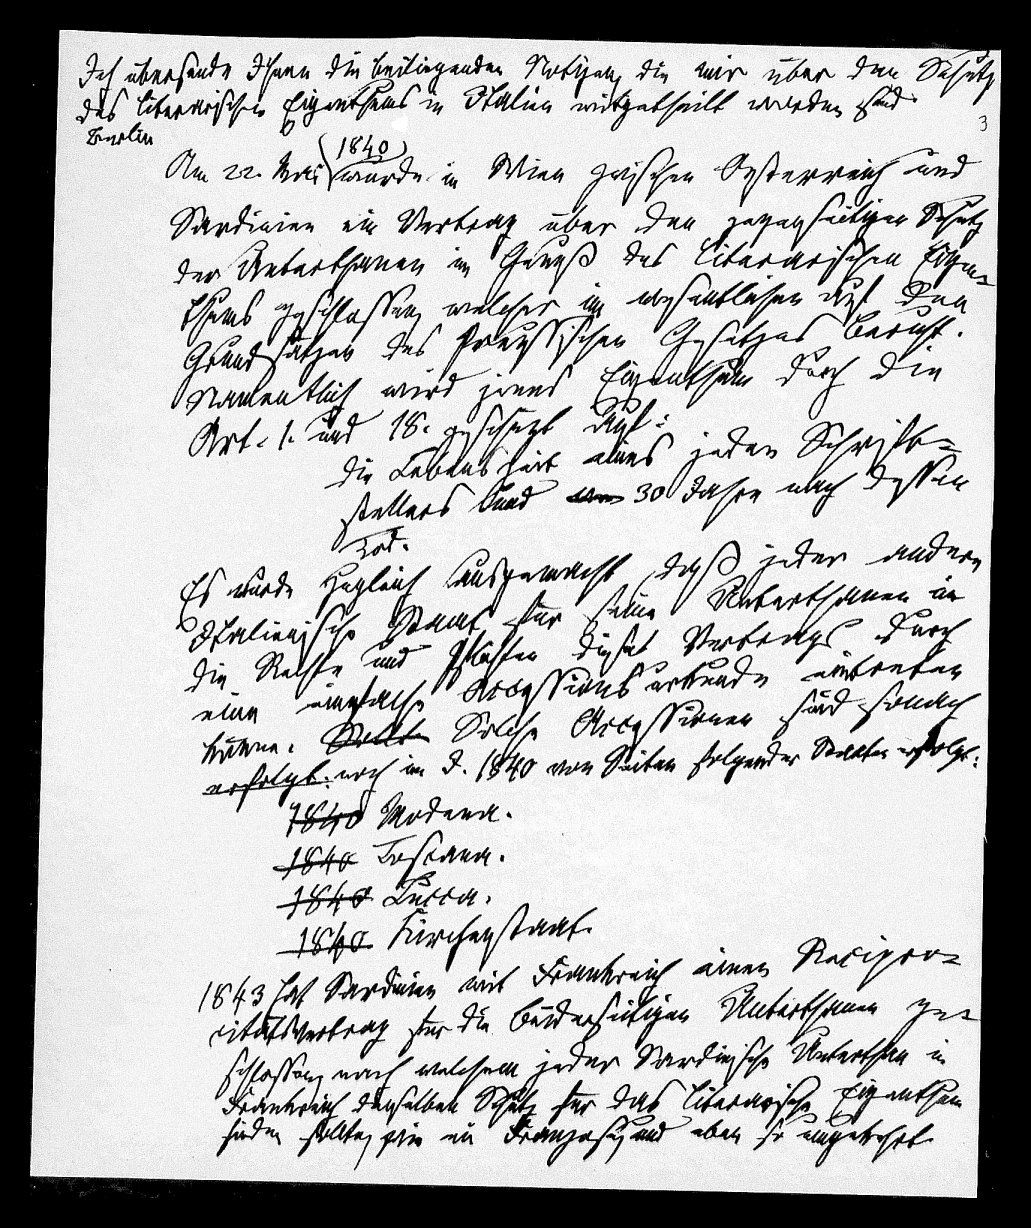 Ich übersende Ihnen die beiliegenden Notizen, die mir über den Schutz
des literarischen Eigenthums in Italien mitgetheilt worden sind.
3
Berlin
(1840)
Am 22. Mai wurde in Wien zwischen Oesterreich und
Sardinien ein Vertrag über den gegenseitigen Schutz
der Unterthanen im Genuß des literarischen Eigen-
thums geschlossen, welcher im wesentlichen auf den
Grundsätzen des Preussischen Gesetzes beruht.
Namentlich wird jenes Eigenthum durch die
Art. 1. und 18. geschützt auf:
die Lebenszeit eines jeden Schrift-
stellers und 30 Jahre nach dessen
Tod.
Es wurde zugleich ausgemacht, daß jeder andere
Italienische Staat für seine Unterthanen in
die Rechte und Pflichten dieses Vertrags durch
eine einfache Accessionsurkunde eintreten
könne. Solche Accessionen sind sonach
erfolgt: noch im J. 1840 von Seiten folgender Staaten erfolgt:
1840 Modena.
1840 Toscana.
1840 Lucca.
1840 Kirchenstaat.
1843 hat Sardinien mit Frankreich einen Recipro-
citätsvertrag für die beiderseitigen Unterthanen ge-
schlossen, nach welchem jeder Sardinische Unterthan in
Frankreich denselben Schutz für das literarische Eigenthum
finden sollte, wie ein Franzose, und eben so umgekehrt.